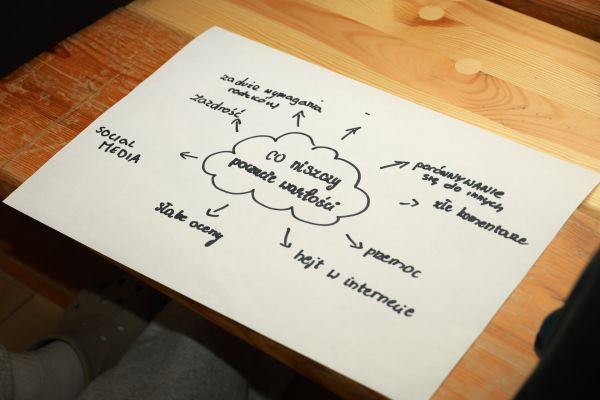 za duże wymagania
rodziców
zazdrość
-
SOCIAL
MEDIA
co niszczy
poczucie wartości
porównywanie
się do innych
złe komentarze
słabe oceny
przemoc
hejt w internecie